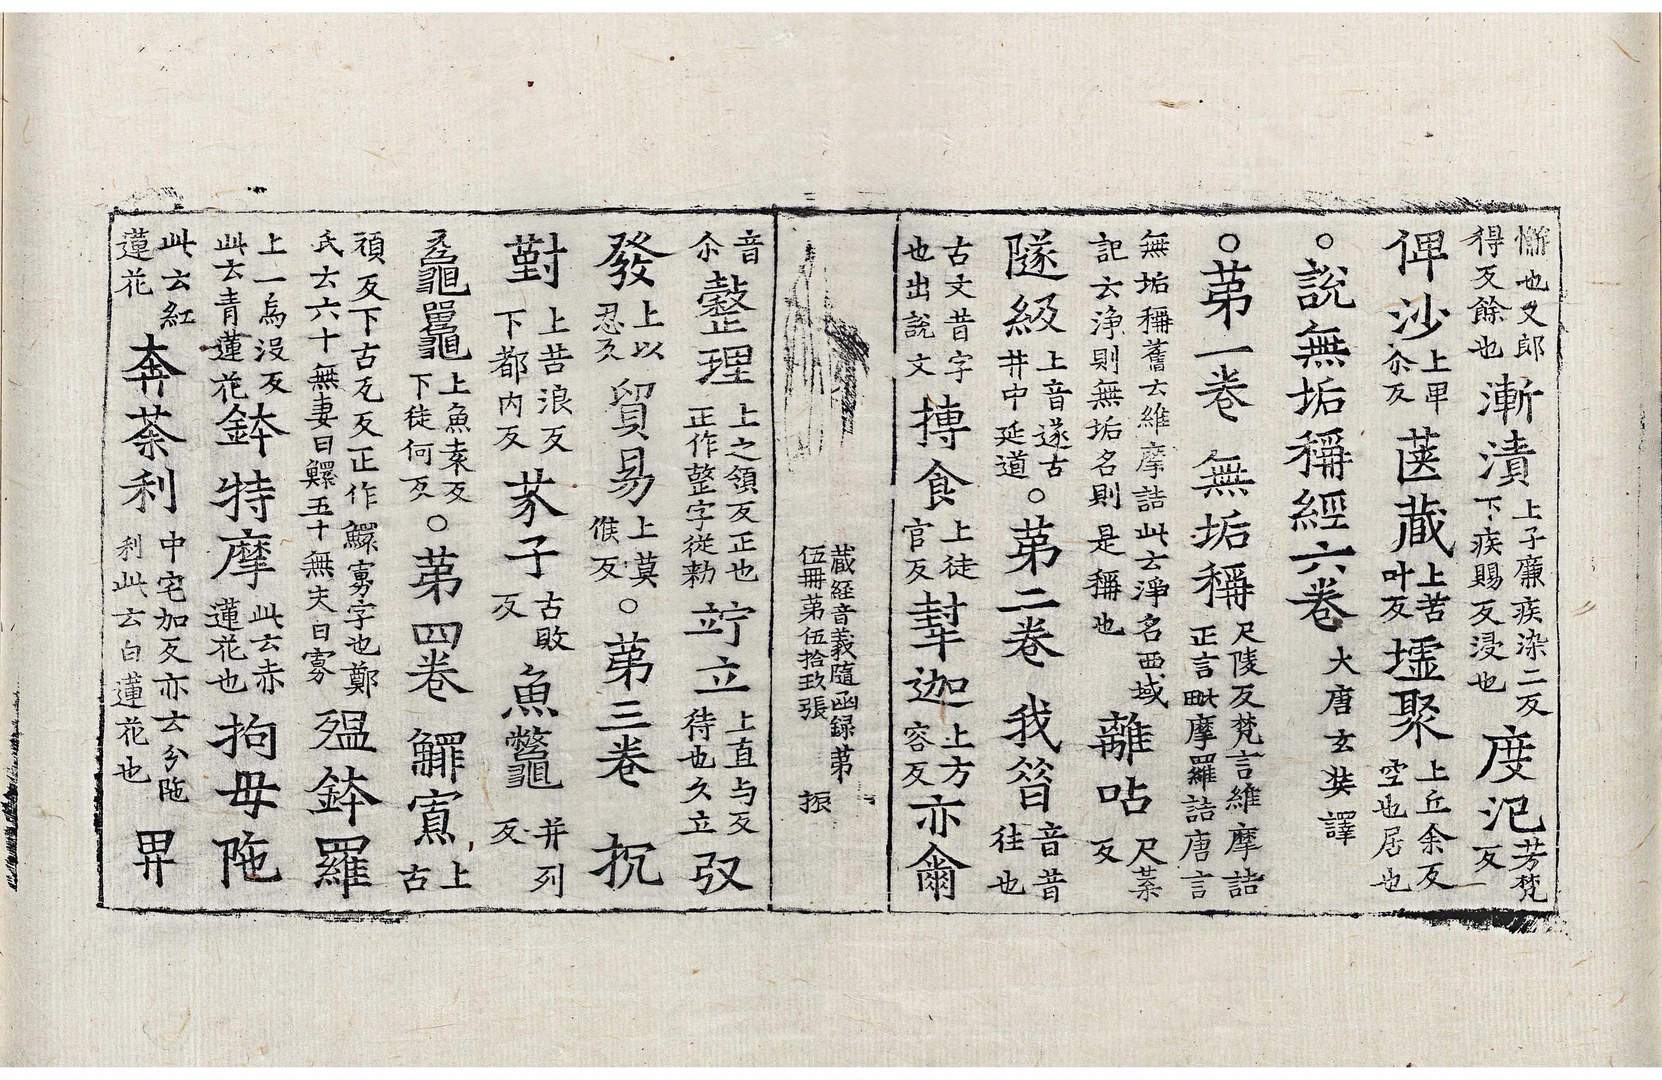 懈也又郎
得反餘也漸漬上子廉疾染二反
下疾賜反浸也度汜芳梵
反
俾沙上甲
尒反匧藏上苦
叶反墟聚上丘余反
空也居也
○說無垢稱經六卷大唐玄奘譯
○苐一卷 無垢稱尺陵反梵言維摩詰
正言毗摩羅詰唐言
無垢稱舊云維摩詰此云淨名西域
記云淨則無垢名則是稱也離呫尺葉
反
隧級上音遂古
井中延道○苐二卷 我昝音昔
往也
古文昔字
也出說文搏食上徒
官反犎迦上方
容反亦兪
藏経音義隨函録苐
伍冊苐伍拾玖張 振
音
尒整理上之領反正也
正作整字從勑竚立上直与反
待也久立弞
發上以
忍反貿易上莫
候反○苐三卷 抗
對上苦浪反
下都内反芥子古敗
反魚鼈并列
反
黿鼉上魚袁反
下徒何反○苐四卷 鰥寡上
古
頑反下古瓦反正作鰥寡字也鄭
氏云六十無妻曰鰥五十無夫曰寡殟鉢羅
上一烏没反
此云青蓮花鉢特摩此云赤
蓮花也拘毋陁
此云紅
蓮花奔荼利中宅加反亦云分陁
利此云白蓮花也 畀